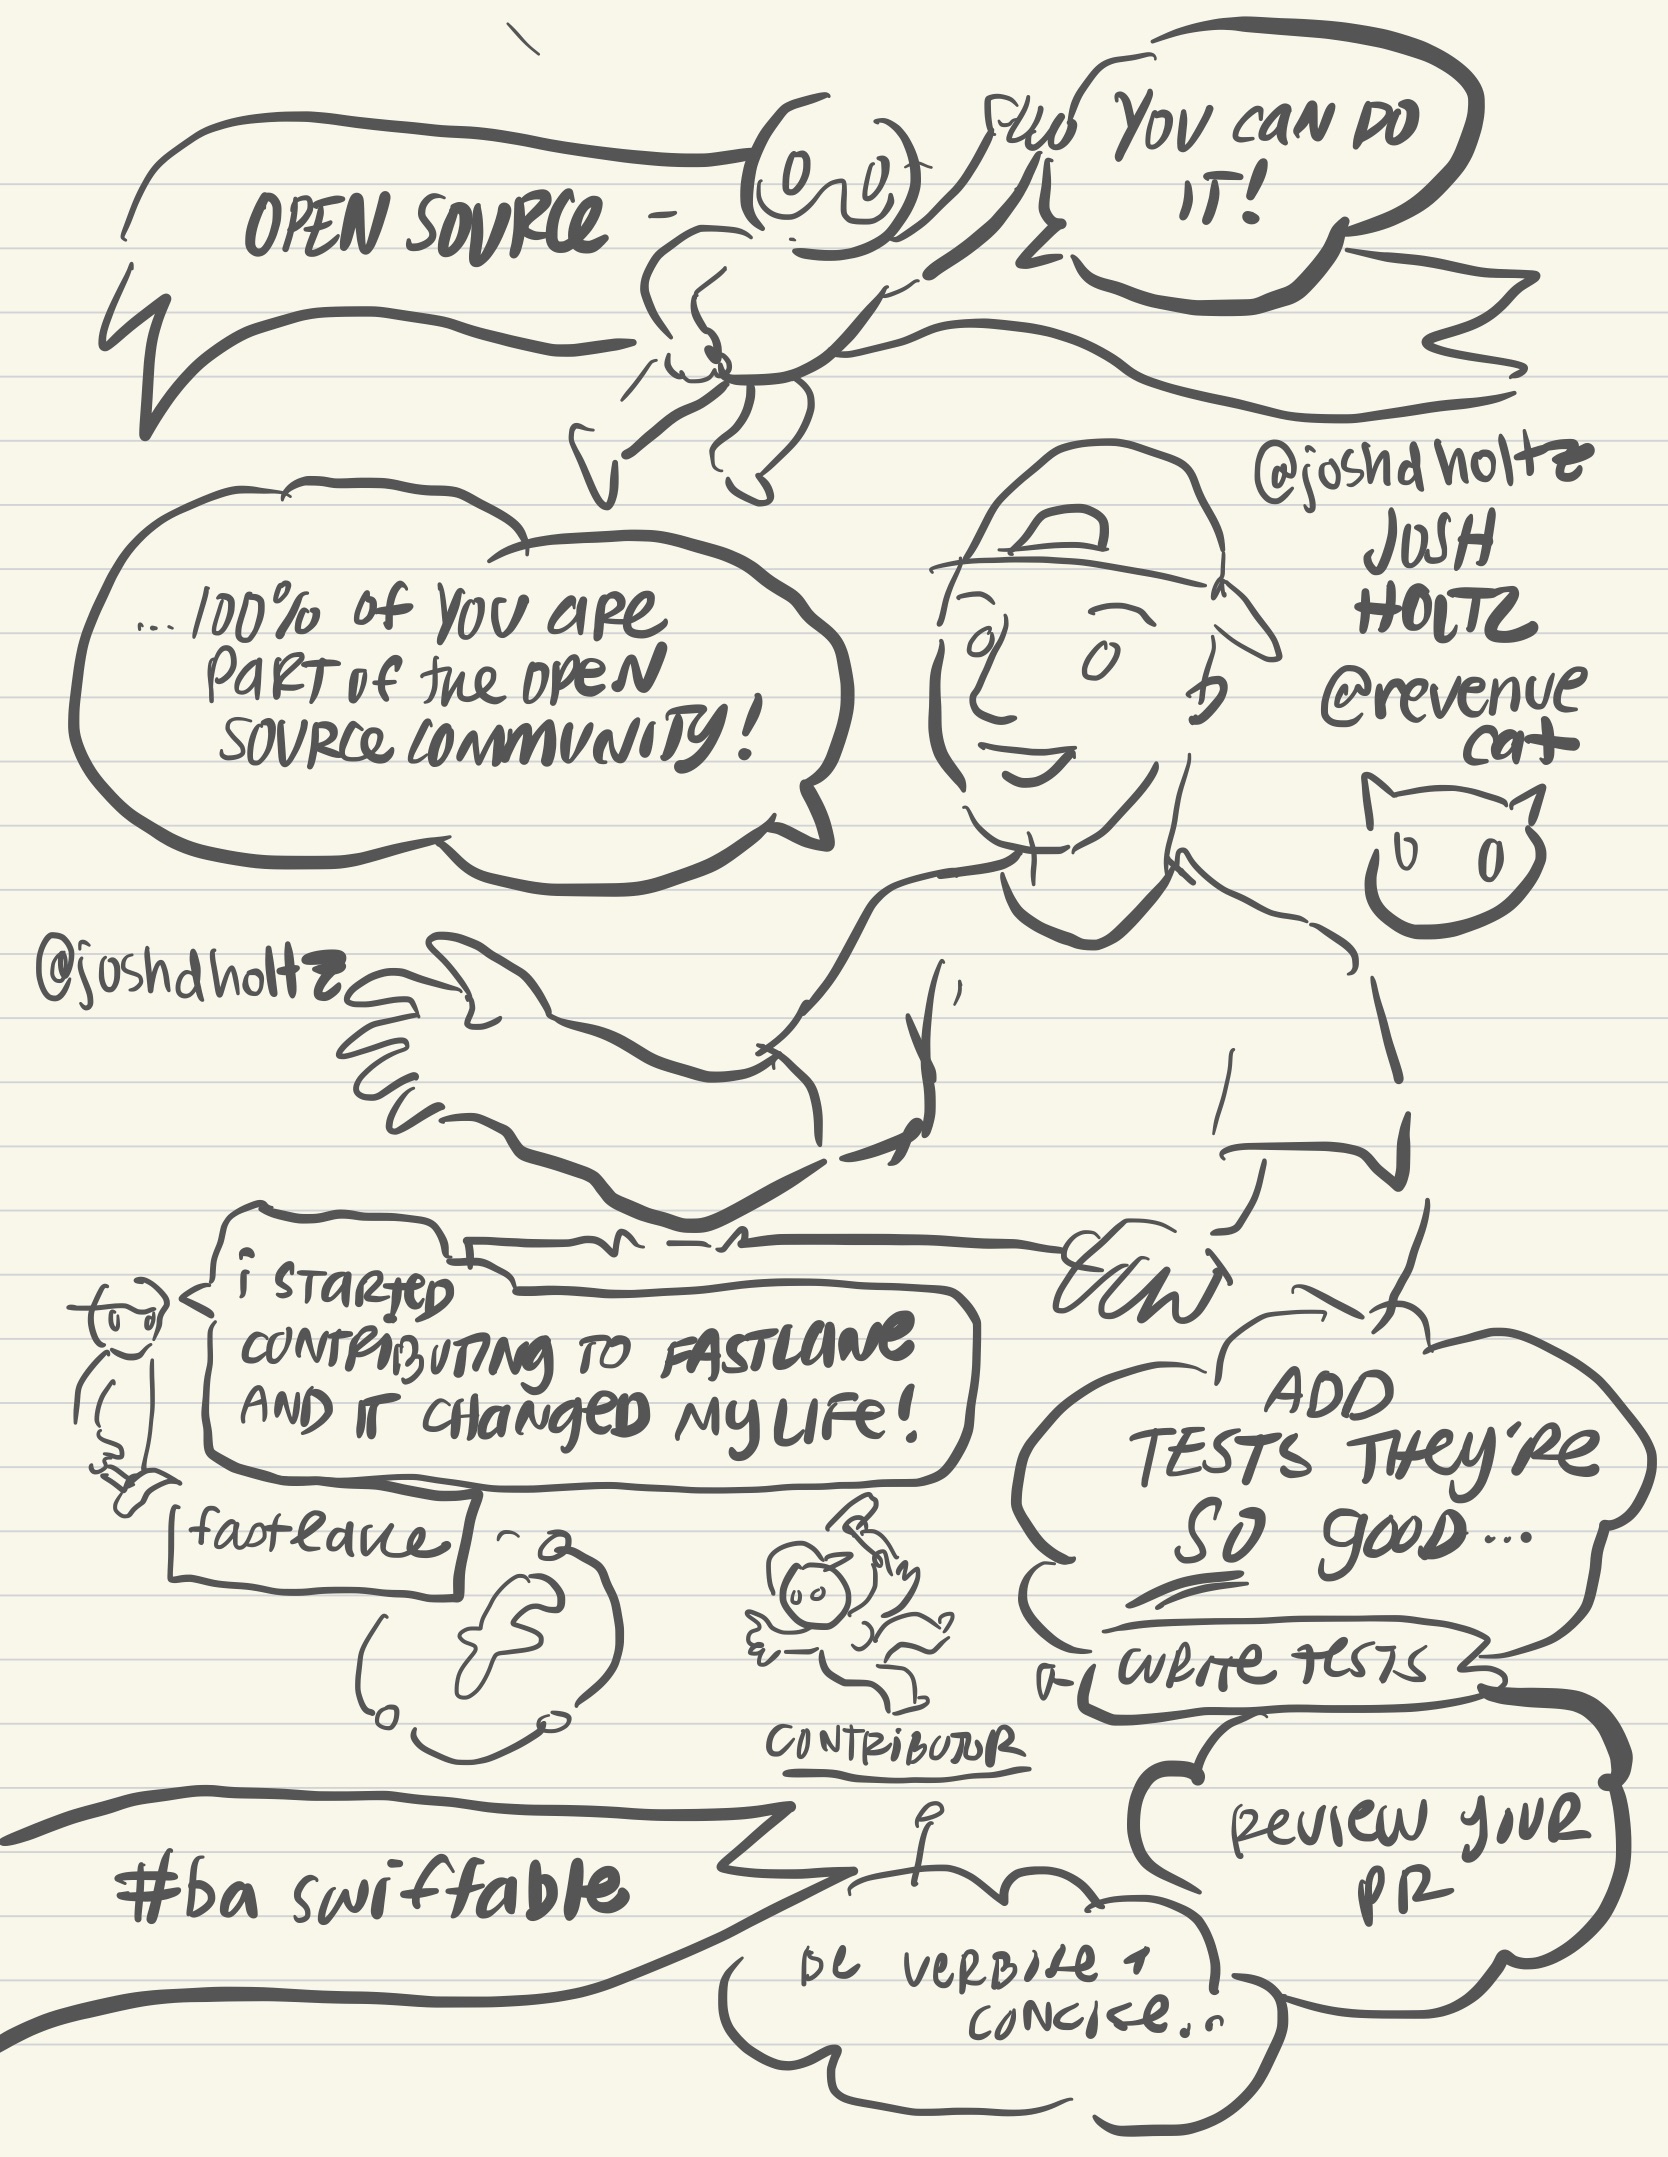 OPEN SOURCE -
YOU CAN DO
IT!
@joshdholtz
JOSH
HOLTZ
@revenue
cat
...100% of YOU are
PART of the open
SOURCE COMMUNITY!
@joshdholtz
i STARTED
CONTRIBUTING TO FASTLANE
AND IT CHANGED MY LIFE!
fastlane
ADD
TESTS THEY'RE
SO GOOD...
WRITE TESTS
CONTRIBUTOR
REVIEW YOUR
PR
#ba swiftable
BE VERBOSE +
CONCISE...